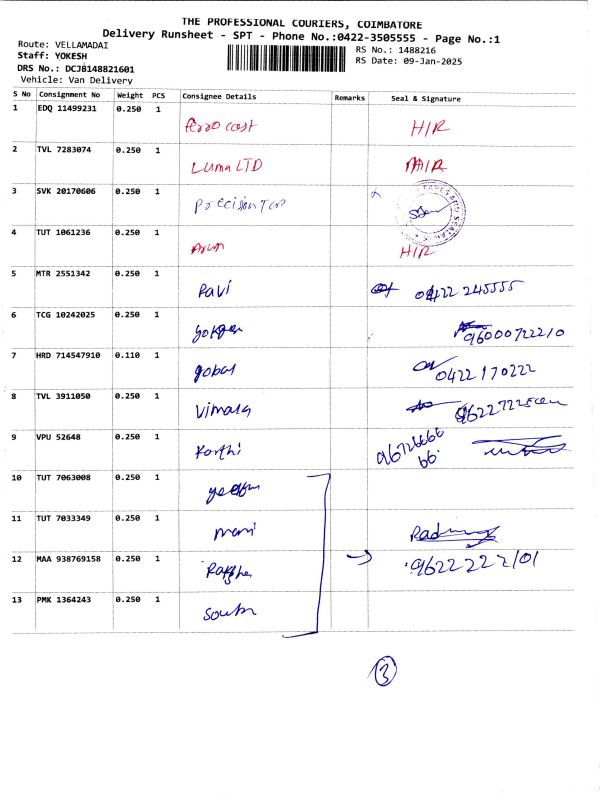 THE PROFESSIONAL COURIERS, COIMBATORE
Delivery Runsheet - SPT - Phone No.:0422-3505555 - Page No.:1
Route: VELLAMADAI
RS No.: 1488216
Staff: YOKESH
RS Date: 09-Jan-2025
DRS No.: DCJB148821601
Vehicle: Van Delivery
S No Consignment No Weight PCS Consignee Details Remarks Seal & Signature
1 EDQ 11499231 0.250 1 ferro cast H/R
2 TVL 7283074 0.250 1 Luma LTD H/R
3 SVK 20170606 0.250 1 Precision
4 TUT 1061236 0.250 1 H/R
5 MTR 2551342 0.250 1 Ravi 0422 245555
6 TCG 10242025 0.250 1 9600072210
7 HRD 714547910 0.110 1 gobal 0422 170222
8 TVL 3911050 0.250 1 Vimala
9 VPU 52648 0.250 1 Karthi 96726666 66.
10 TUT 7063008 0.250 1
11 TUT 7033349 0.250 1 mani
12 MAA 938769158 0.250 1 9622222101
13 PMK 1364243 0.250 1
3